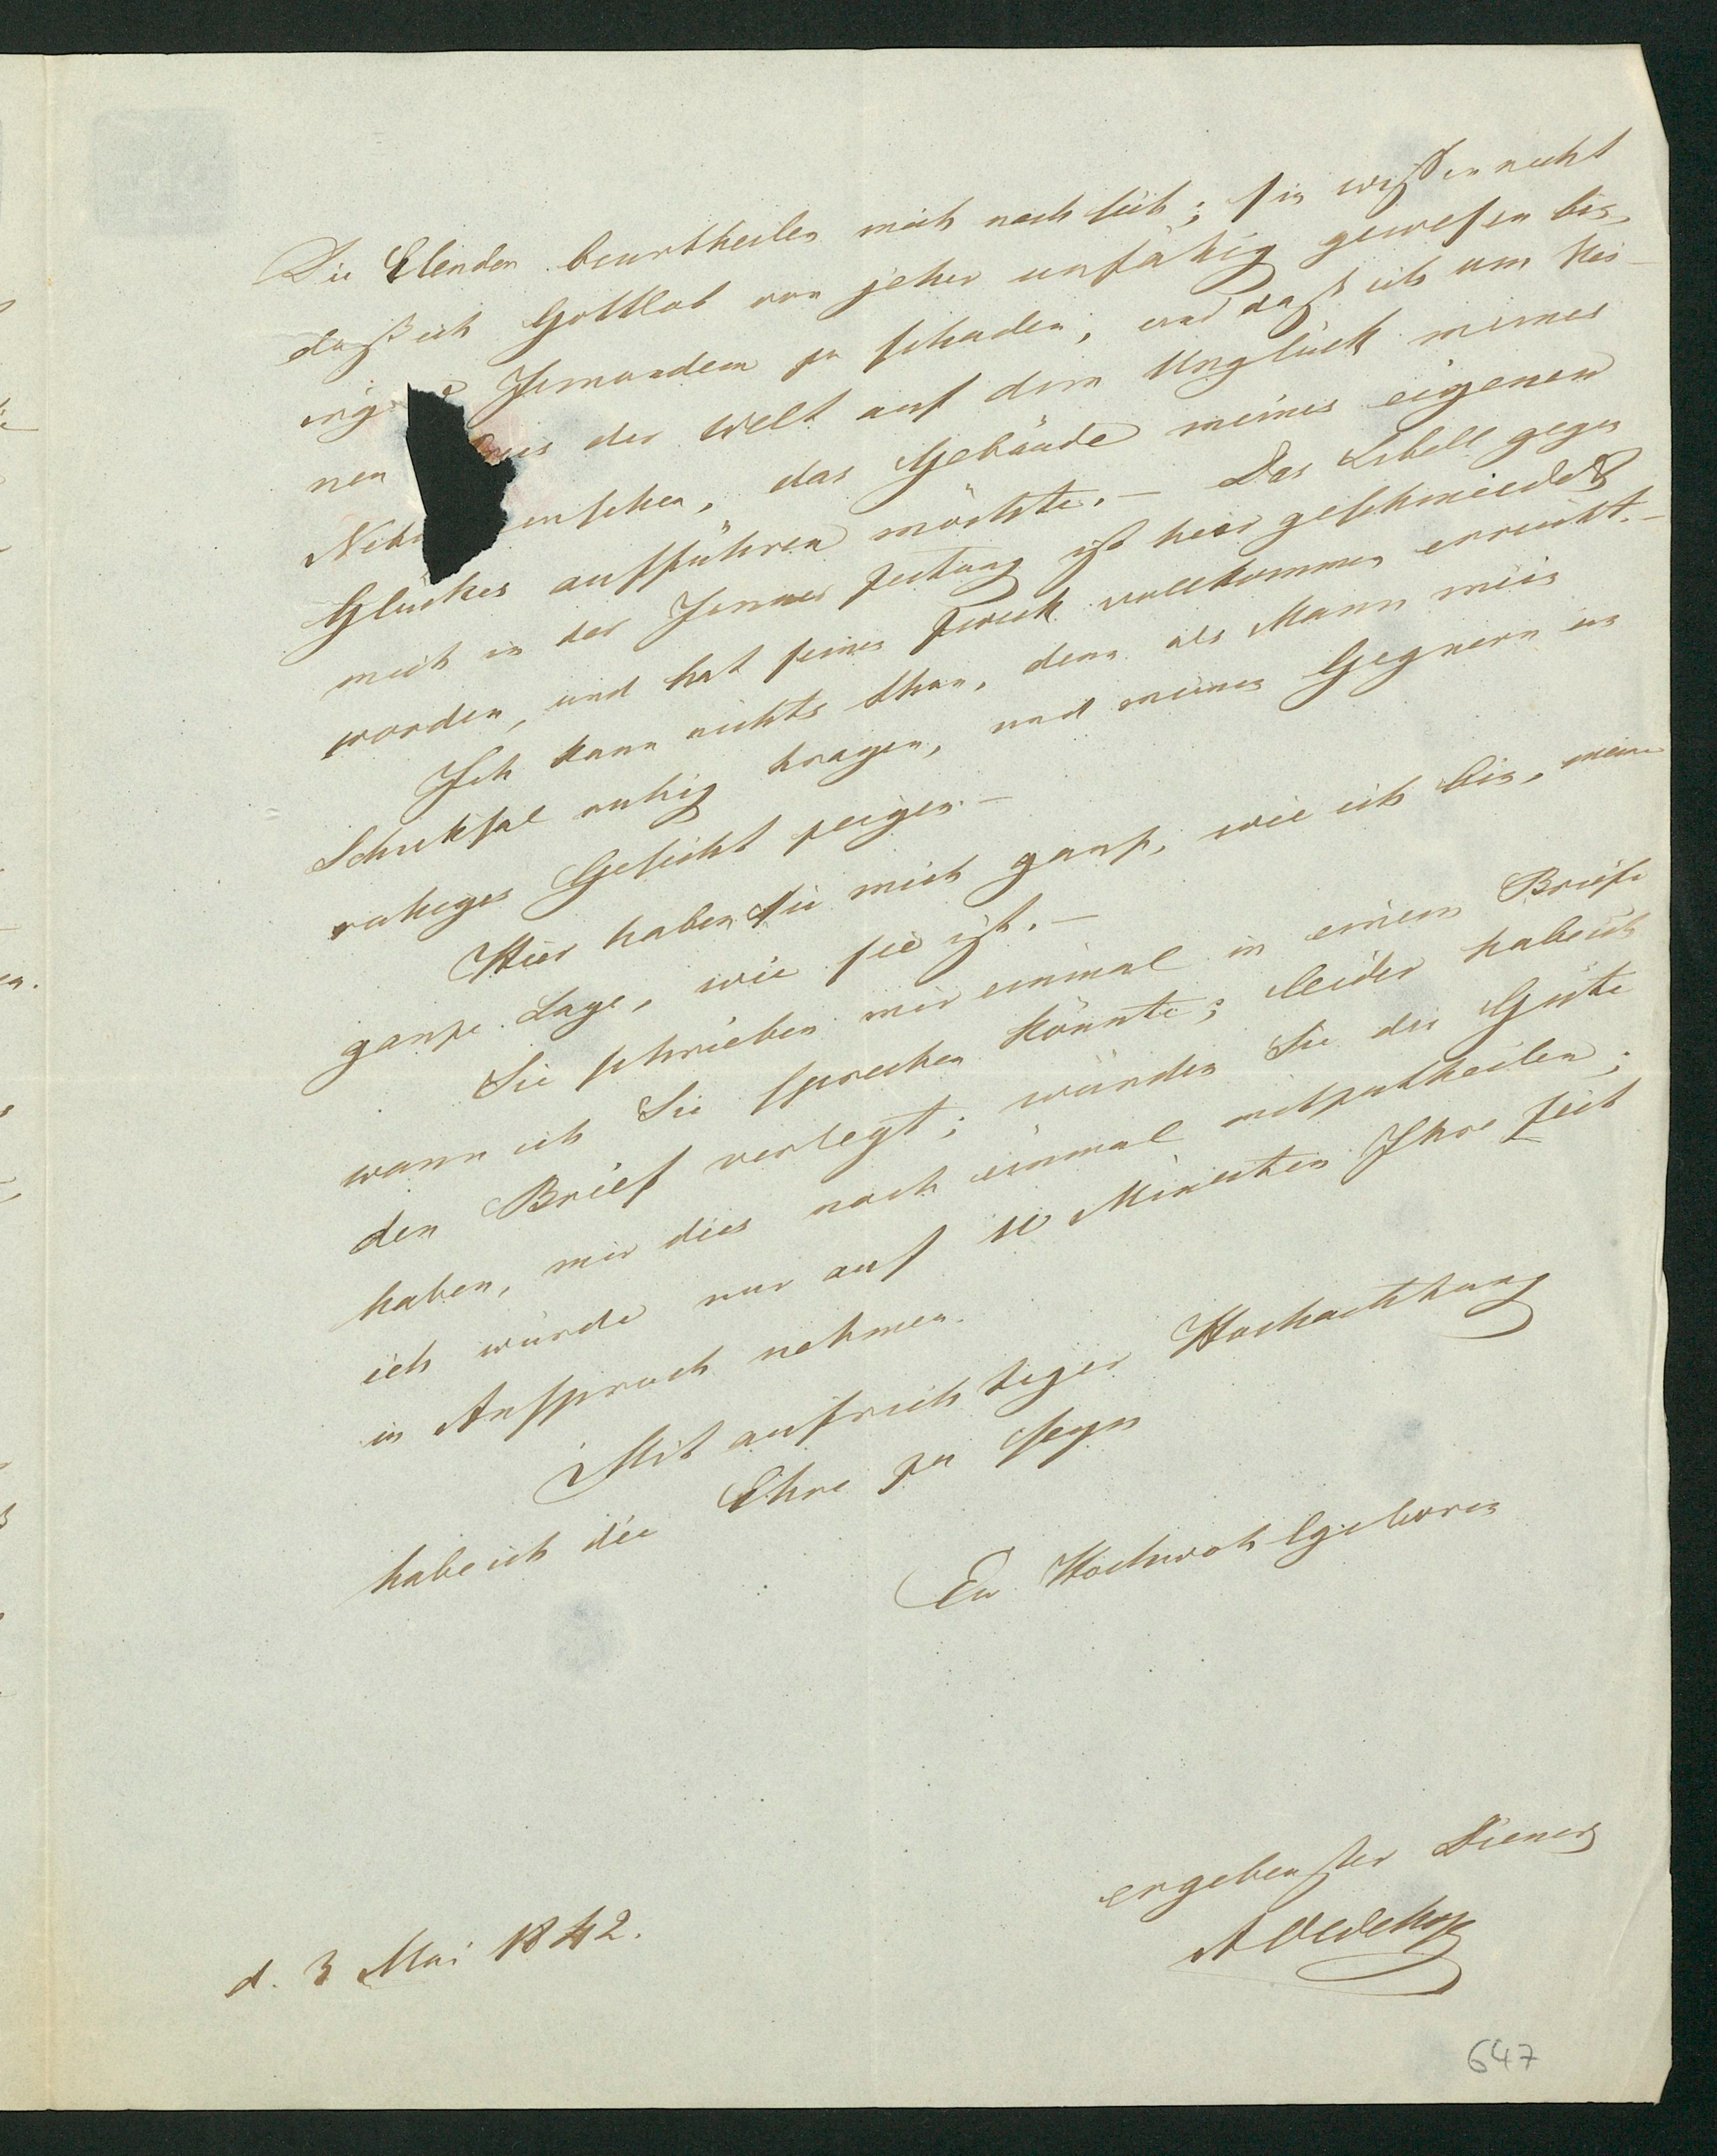 Die Elenden beurtheilen mich nach sich; sie wissen nicht
daß ich Gottlob von jeher unfähig gewesen bin,
Jemandem zu schaden, und daß ich um kei-
nen Preis der Welt auf dem Unglück meines
Neben enschen, das Gebäude meines eigenen
Glückes aufführen möchte. – Das Libell gegen
mich in der Jenaer Zeitung ist hier geschmiedet
worden, und hat seinen Zweck vollkommen erreicht. –
Ich kann nichts thun, denn als Mann mein
Schicksal ruhig tragen, und meinen Gegnern ein
ruhiges Gesicht zeigen. –
Hier haben Sie mich ganz, wie ich bin, meine
ganze Lage, wie sie ist. –
Sie schrieben mir einmal in einem Briefe
wann ich Sie sprechen könnte; leider habe ich
den Brief verlegt; würden Sie die Güte
haben, mir dies noch einmal mitzutheilen;
ich würde nur auf 10 Minuten Ihre Zeit
in Anspruch nehmen.
Mit aufrichtiger Hochachtung
habe ich die Ehre zu seyn
Ew Hochwohlgeboren
ergebenster Diener
d. 3 Mai 1842.
647